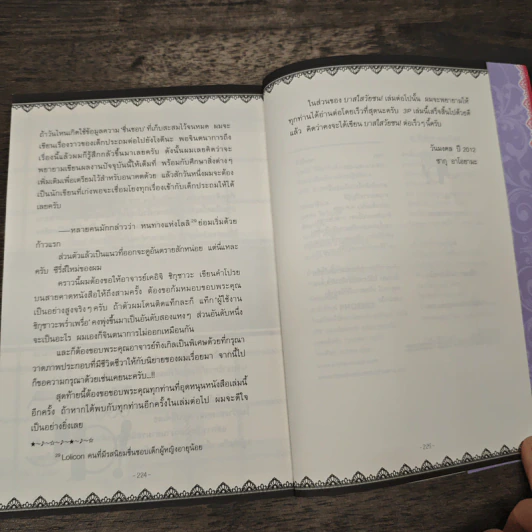 ถ้าวันไหนเกิดใช้ข้อมูลความ 'ชื่นชอบ' ที่เก็บสะสมไว้จนหมด ผมจะ
เขียนเรื่องราวของเด็กประถมต่อไปยังไงดีนะ พอจินตนาการถึง
เรื่องนี้แล้วผมก็รู้สึกกลัวขึ้นมาเลยครับ ดังนั้นผมเลยคิดว่าจะ
พยายามเขียนผลงานปัจจุบันนี้ให้เต็มที่ พร้อมกับศึกษาสิ่งต่างๆ
เพิ่มเติมเพื่อเตรียมไว้สำหรับอนาคตด้วย แล้วสักวันหนึ่งผมจะต้อง
เป็นนักเขียนที่เก่งพอจะเชื่อมโยงทุกเรื่องเข้ากับเด็กประถมให้ได้
เลยครับ
——หลายคนมักกล่าวว่า หนทางแห่งโลลิ²⁹ ย่อมเริ่มด้วย
ก้าวแรก
ส่วนตัวแล้วเป็นแนวที่ออกจะดูอันตรายสักหน่อย แต่นี่แหละ
ครับ ซีรี่ส์ใหม่ของผม
คราวนี้ผมต้องขอให้อาจารย์เคอิจิ ชิกุซาวะ เขียนคำโปรย
บนสายคาดหนังสือให้ถึงสามครั้ง ต้องขอก้มหมอบขอบพระคุณ
เป็นอย่างสูงจริงๆ ครับ ถ้าตัวผมโดนติดแท็กละก็ แท็ก 'ผู้ใช้งาน
ชิกุซาวะพร่ำเพรื่อ' คงพุ่งขึ้นมาเป็นอันดับสองแหงๆ ส่วนอันดับหนึ่ง
จะเป็นอะไร ผมเองก็จินตนาการไม่ออกเหมือนกัน
และก็ต้องขอบพระคุณอาจารย์ทิงเกิลเป็นพิเศษด้วยที่กรุณา
วาดภาพประกอบที่มีชีวิตชีวาให้กับนิยายของผมเรื่อยมา จากนี้ไป
ก็ขอความกรุณาด้วยเช่นเคยนะครับ...!!
สุดท้ายนี้ต้องขอขอบพระคุณทุกท่านที่อุดหนุนหนังสือเล่มนี้
อีกครั้ง ถ้าหากได้พบกับทุกท่านอีกครั้งในเล่มต่อไป ผมจะดีใจ
เป็นอย่างยิ่งเลย
★~♪~☆~♪~★~♪~☆
²⁹ Lolicon คนที่มีรสนิยมชื่นชอบเด็กผู้หญิงอายุน้อย
-224-
ในส่วนของ บาสใสวัยซน! เล่มต่อไปนั้น ผมจะพยายามให้
ทุกท่านได้อ่านต่อโดยเร็วที่สุดนะครับ SP เล่มนี้เสร็จสิ้นไปด้วยดี
แล้ว คิดว่าคงจะได้เขียน บาสใสวัยซน! ต่อเร็วๆ นี้ครับ
วันมงคล ปี 2012
ซากุ อาโอยามะ
-225-